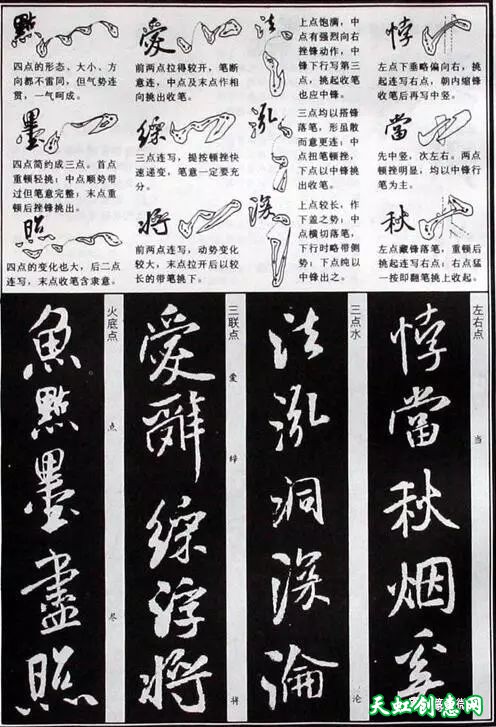 點
四点的形态、大小、方
向都不雷同,但气势连
贯,一气呵成。
愛
前两点拉得较开,笔断
意连,中点及末点作相
向挑出收笔。
法
上点饱满,中
点有强烈向右
挫锋动作,中
锋下行写第三
点,挑起收笔
也应中锋。
悖
左点下垂略偏向右,挑
起连写右点,朝内缩锋
收笔后再写中竖。
墨
四点简约成三点。首点
重顿轻挑;中点顺势带
过但笔意完整;末点重
顿后挫锋挑出。
三点连写,提按顿挫快
速递变,笔意一定要充
分。
泓
三点均以搭锋
落笔,形虽散
而意更连;中
点扭笔顿挫,
下点以中锋挑
出收笔。
當
先中竖,次左右。两点
顿挫明显,均以中锋行
笔为主。
照
四点的变化也大,后二点
连写,末点收笔含隶意。
將
前两点连写,动势变化
较大,末点拉开后以较
长的带笔挑下。
深
上点较长,作
下盖之势;中
点横切落笔,
下行时略带侧
势;下点纯以
中锋出之。
秋
左点藏锋落笔,重顿后
挑起连写右点;右点猛
一按即翻笔挑上收起。
左右点
当
悖當秋烟
三点水
沦
法泓洞深淪
三联点
爱
将
愛
浮將
火底点
点
尽
魚點墨盡照
天虹创意网